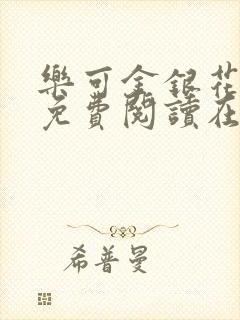 樂可金銀花
免費閱讀在
希普曼